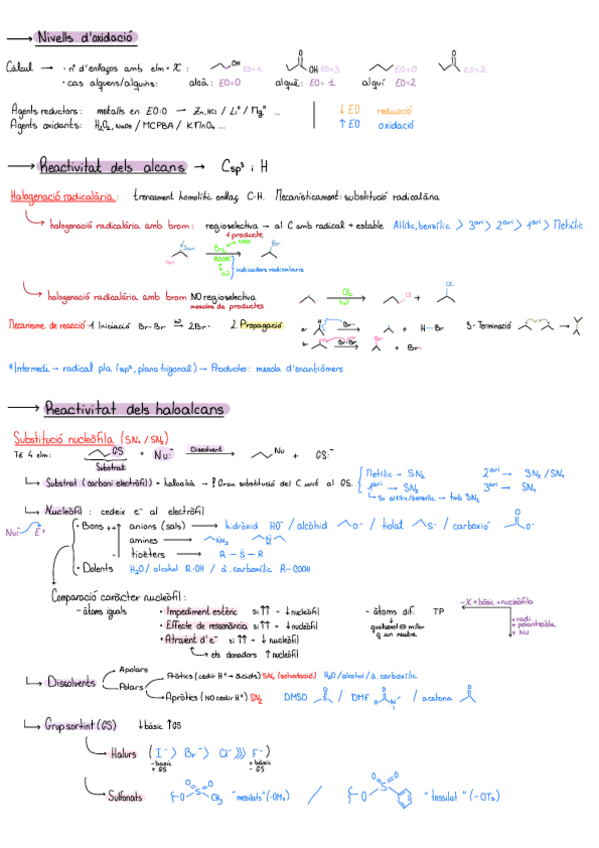 → Nivells d'oxidació
Càlcul → · nº d'enllaços amb elm + X : OH EO=1 O OH EO=3 EO=0 O EO=2
· cas alquens/alquins: alcà: EO=0 alquè: EO=1 alquí EO=2
Agents reductors: metalls en EO:0 → Zn,HCl / Li⁰ / Mg⁰ ... ↓EO reducció
Agents oxidants: H₂O₂,NaOH / MCPBA / KMnO₄ ... ↑EO oxidació
→ Reactivitat dels alcans → Csp³ i H
Halogenació radicalària: trencament homolític enllaç C-H. Mecanísticament: substitució radicalària
halogenació radicalària amb brom: regioselectiva → al C amb radical + estable Al·lílic, benzílic > 3ari > 2ari > 1ari > Metílic
1 producte
Br₂
Br
hν
indicadors radicalaris
halogenació radicalària amb brom NO regioselectiva Cl₂ Cl + Cl
mescles de productes hν
Mecanisme de reacció 1. Iniciació Br-Br hν 2Br· 2. Propagació H Br· + H-Br 3. Terminació
Br-Br Br + Br·
*Intermedi → radical pla (sp², plana trigonal) → Productes: mescla d'enantiòmers
→ Reactivitat dels haloalcans
Substitució nucleòfila (SN₁ / SN₂)
Té 4 elm: GS + Nu:⁻ Dissolvent → Nu + GS:⁻
Substrat
Substrat (carboni electròfil) = haloalcà → Gran substitució del C unit al GS. Metílic → SN₂ 2ari → SN₂/SN₁
1ari → SN₂ 3ari → SN₁
Si al·lílic/benzílic → tmb SN₂
Nucleòfil : cedeix e⁻ al electròfil
Nu:⁻ E⁺ · Bons ++ anions (sals) → hidròxid HO⁻ / alcòhid O⁻ / tiolat S⁻ / carboxió O O⁻
amines → NH₂ N
- tioèters → R-S-R
· Dolents H₂O/alcohol R-OH / à. carboxílic R-COOH
Comparació caràcter nucleòfil:
- àtoms iguals · Impediment estèric si ↑↑ → ↓nucleòfil - àtoms dif. TP - X + bàsic + nucleòfila
· Efecte de ressonància si ↑↑ → ↓nucleòfil qualsevol ⊖ millor q un neutre + radi
· Atraient d'e⁻ si ↑↑ → ↓ nucleòfil + polaritzable
els donadors ↑nucleòfil + Nu
Dissolvents Apolars
Polars Pròtics (cedir H⁺ → àcids) SN₁ (solvatació) H₂O/alcohol/à. carboxílic
Apròtics (NO cedir H⁺) SN₂ DMSO O S / DMF O H N / acetona O
Grup sortint (GS) ↓bàsic ↑GS
Halurs ( I⁻ > Br⁻ > Cl⁻ >>> F⁻ )
- bàsic + GS + bàsic - GS
Sulfonats O S O O CH₃ "mesilats" (-OMs) / O S O O "tossilat" (-OTs)